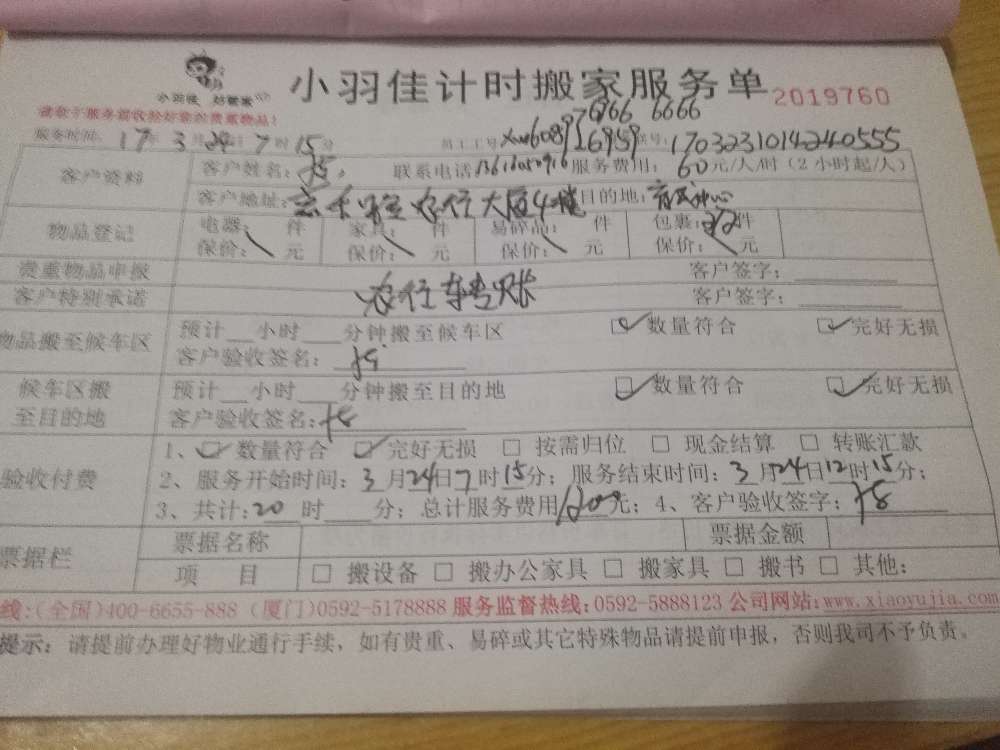 小羽佳计时搬家服务单 2019760
小羽佳 好管家
请您于服务前收捡好您的贵重物品!
7666 6666
服务时间: 17年 3月 24日 7时 15分 员工工号 16959 单号: 17032310142240555
客户资料 客户姓名: 联系电话 服务费用: 60元/人/时(2小时起/人)
客户地址: 农行大厦4楼 目的地:
物品登记 电器: 件 家具: 件 易碎品: 件 包裹: 件
保价: 元 保价: 元 保价: 元 保价: 元
贵重物品申报 客户签字:
客户特别承诺 农行转账 客户签字:
物品搬至候车区 预计 小时 分钟搬至候车区 数量符合 完好无损
客户验收签名:
候车区搬至目的地 预计 小时 分钟搬至目的地 数量符合 完好无损
客户验收签名:
验收付费 1、 数量符合 完好无损 按需归位 现金结算 转账汇款
2、服务开始时间: 3月24日7时15分; 服务结束时间: 3月24日12时15分;
3、共计: 20时 分; 总计服务费用1200元; 4、客户验收签字:
票据栏 票据名称 票据金额
项 目 搬设备 搬办公家具 搬家具 搬书 其他:
线:(全国)400-6655-888 (厦门)0592-5178888 服务监督热线:0592-5888123 公司网站:www.xiaoyujia.com
提示: 请提前办理好物业通行手续,如有贵重、易碎或其它特殊物品请提前申报,否则我司不予负责。